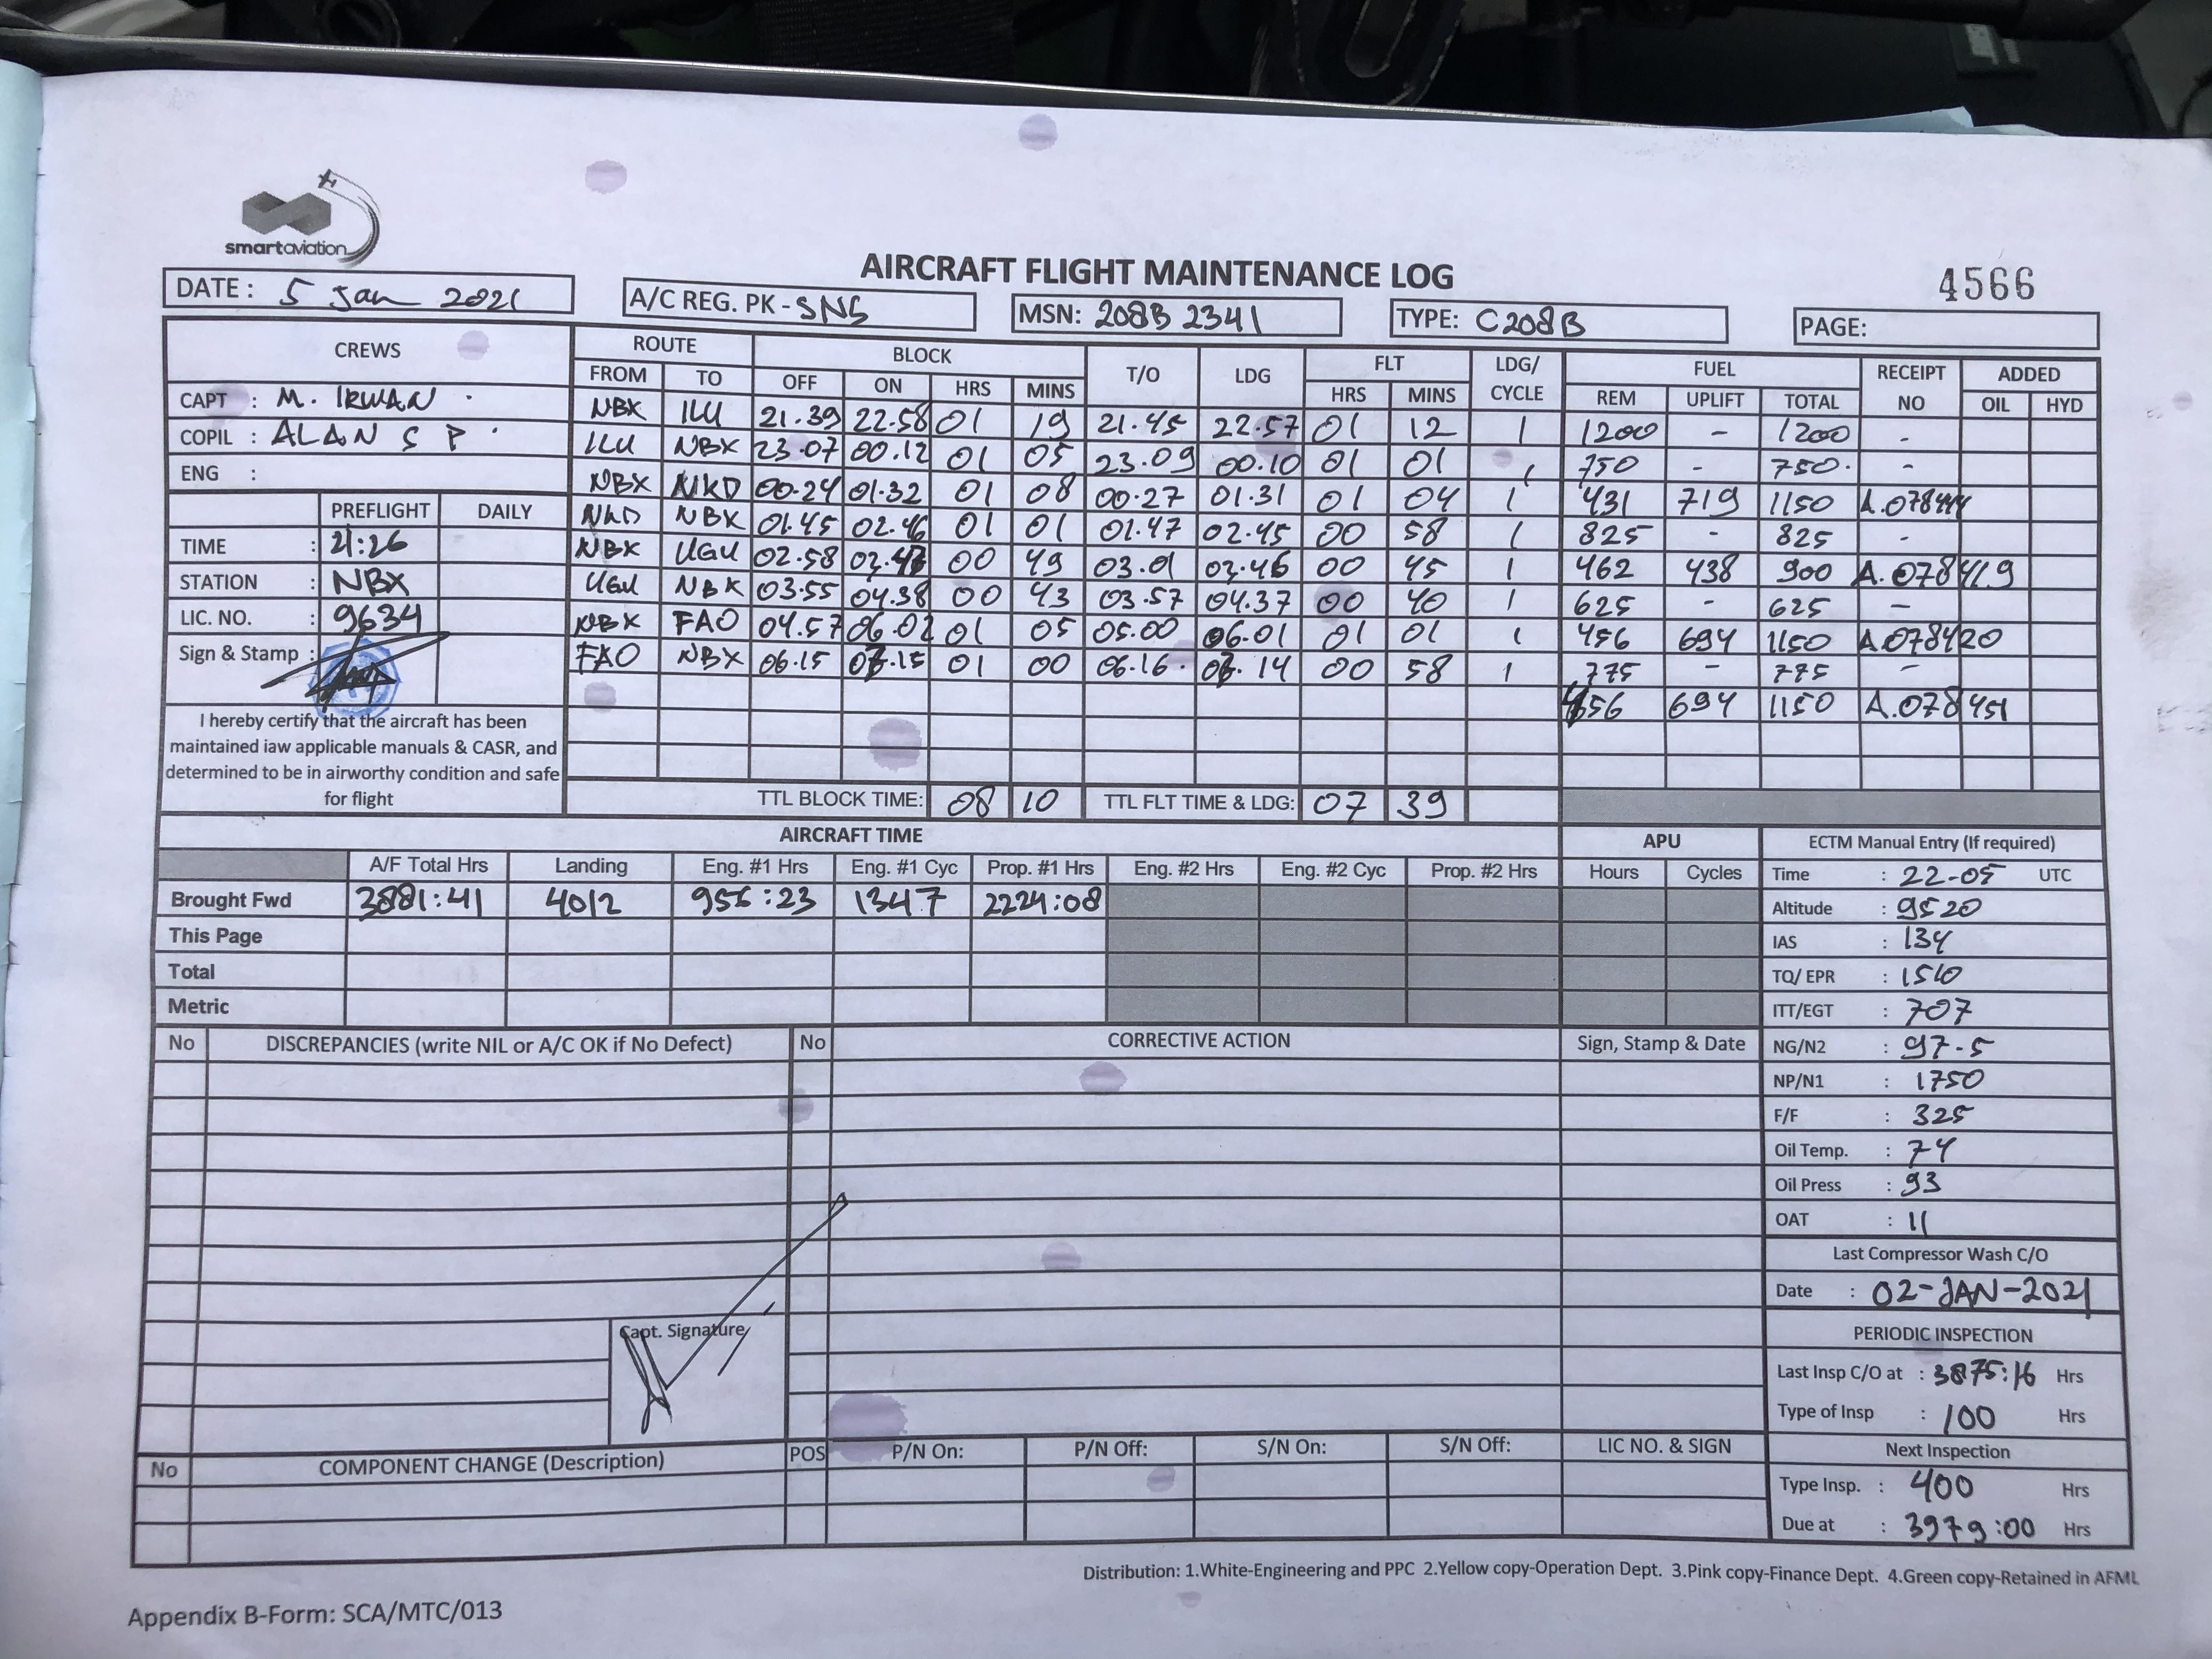 smartaviation
AIRCRAFT FLIGHT MAINTENANCE LOG
4566
DATE: 5 Jan 2021
A/C REG. PK - SNS
MSN: 208B 2341
TYPE: C208B
PAGE:
CREWS ROUTE BLOCK T/O LDG FLT LDG/ CYCLE FUEL RECEIPT NO ADDED
FROM TO OFF ON HRS MINS HRS MINS REM UPLIFT TOTAL OIL HYD
CAPT : M. IRWAN
COPIL : ALAN S P
ENG :
NBX ILU 21.39 22.58 01 19 21.45 22.57 01 12 1 1200 - 1200 -
ILU NBX 23.07 00.12 01 05 23.09 00.10 01 01 1 750 - 750 -
NBX NKD 00.24 01.32 01 08 00.27 01.31 01 04 1 431 719 1150
NKD NBX 01.45 02.46 01 01 01.47 02.45 00 58 1 825 - 825 -
NBX UGU 02.58 03.47 00 49 03.01 03.46 00 45 1 462 438 900 A.078419
UGU NBX 03.55 04.38 00 43 03.57 04.37 00 40 1 625 - 625 -
NBX FAO 04.57 06.02 01 05 05.00 06.01 01 01 1 456 694 1150 A.078420
FAO NBX 06.15 07.15 01 00 06.16 07.14 00 58 1 775 - 775 -
456 694 1150 A.078451
PREFLIGHT DAILY
TIME : 21:26
STATION : NBX
LIC. NO. : 9634
Sign & Stamp :
I hereby certify that the aircraft has been
maintained iaw applicable manuals & CASR, and
determined to be in airworthy condition and safe
for flight
TTL BLOCK TIME: 08 10 TTL FLT TIME & LDG: 07 39
AIRCRAFT TIME APU
A/F Total Hrs Landing Eng. #1 Hrs Eng. #1 Cyc Prop. #1 Hrs Eng. #2 Hrs Eng. #2 Cyc Prop. #2 Hrs Hours Cycles
Brought Fwd 3881:41 4012 956:23 1347 2224:08
This Page
Total
Metric
ECTM Manual Entry (If required)
Time : 22-05 UTC
Altitude : 9520
IAS : 134
TQ/ EPR : 1510
ITT/EGT : 707
NG/N2 : 97-5
NP/N1 : 1750
F/F : 325
Oil Temp. : 74
Oil Press : 93
OAT : 11
Last Compressor Wash C/O
Date : 02-JAN-2021
PERIODIC INSPECTION
Last Insp C/O at : 3875:16 Hrs
Type of Insp : 100 Hrs
Next Inspection
Type Insp. : 400 Hrs
Due at : 3979:00 Hrs
No DISCREPANCIES (write NIL or A/C OK if No Defect) No CORRECTIVE ACTION Sign, Stamp & Date
Capt. Signature
No COMPONENT CHANGE (Description) POS P/N On: P/N Off: S/N On: S/N Off: LIC NO. & SIGN
Distribution: 1.White-Engineering and PPC 2.Yellow copy-Operation Dept. 3.Pink copy-Finance Dept. 4.Green copy-Retained in AFML
Appendix B-Form: SCA/MTC/013